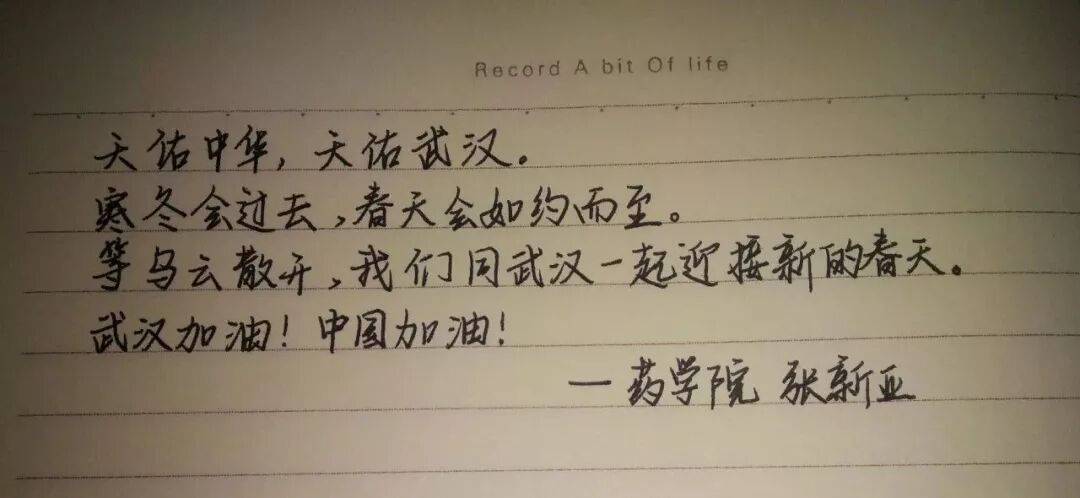 Record A bit Of life
天佑中华，天佑武汉。
寒冬会过去，春天会如约而至。
等乌云散开，我们同武汉一起迎接新的春天。
武汉加油！中国加油！
—药学院 张新亚